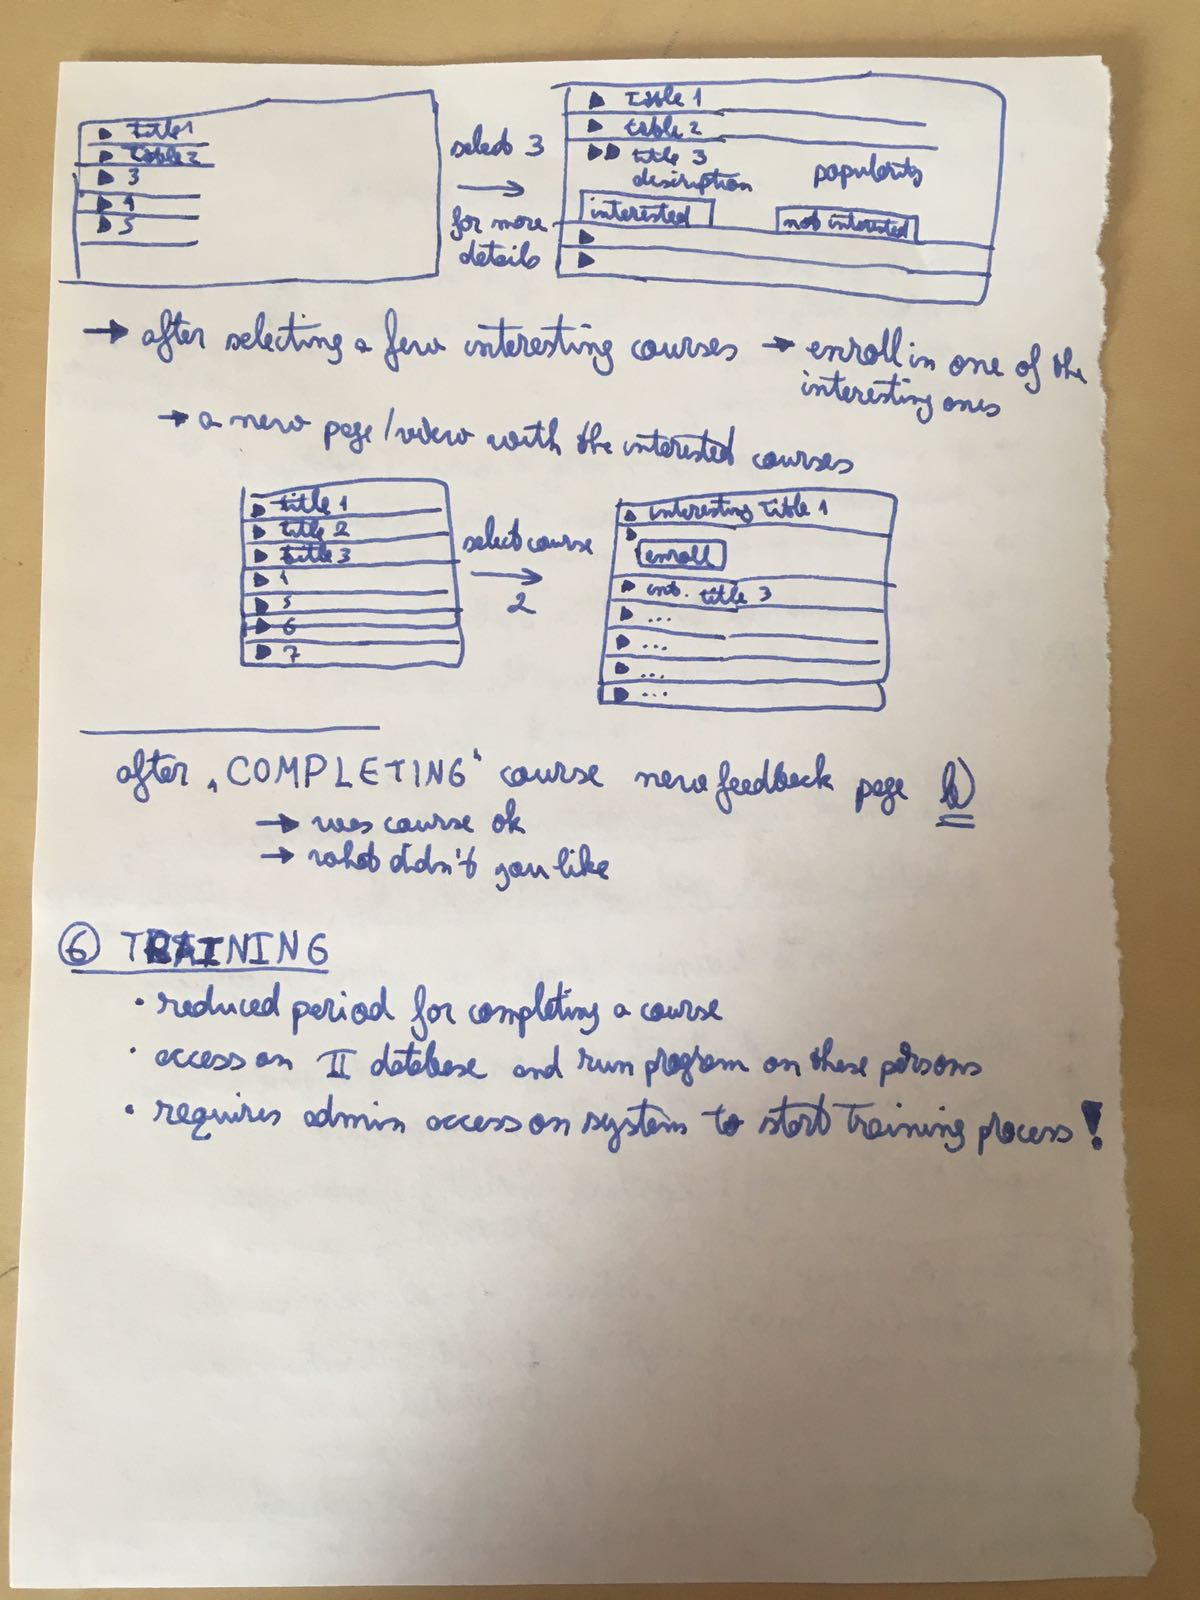 title 1
Table 2
3
4
5
select 3
for more
details
Table 1
table 2
title 3
description
popularity
interested
not interested
→ after selecting a few interesting courses → enroll in one of the
interesting ones
→ a new page/view with the interested courses
title 1
title 2
title 3
1
5
6
7
select course
2
interesting title 1
enroll
int. title 3
...
...
...
...
after „COMPLETING" course new feedback page b)
→ was course ok
→ what didn't you like
6 TRAINING
• reduced period for completing a course
• access on II database and run program on these persons
• requires admin access on system to start training process!